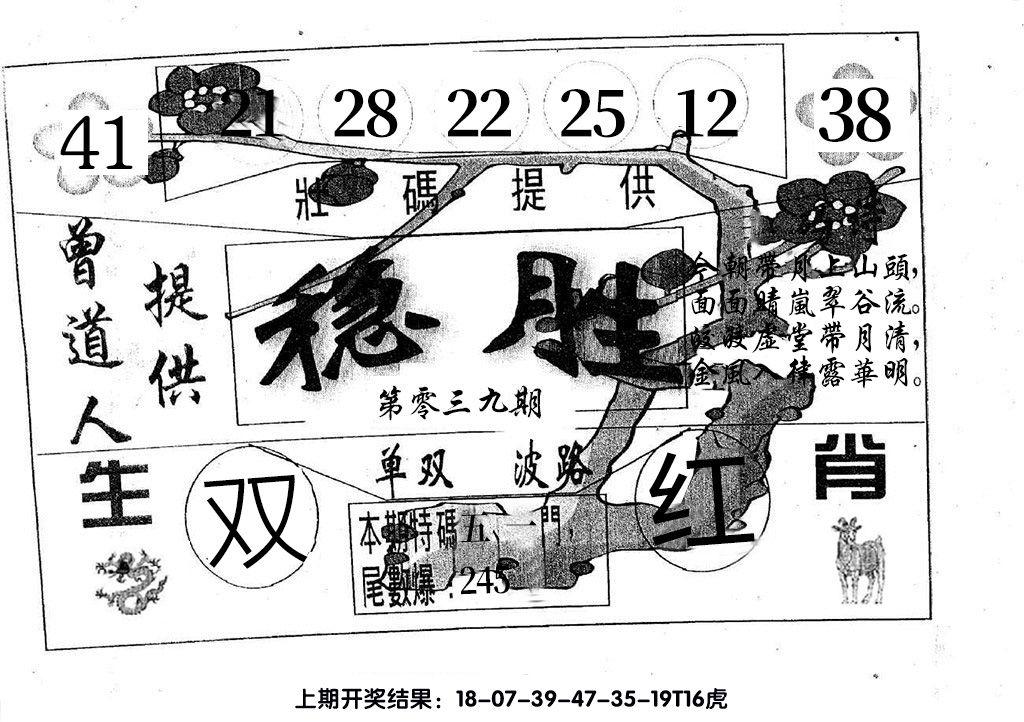 41 21 28 22 25 12 38
壯碼提供
曾道人
提供
稳胜
第零三九期
今朝帶月上山頭，
面面晴嵐翠谷流。
金風入律露華明。
单双 波路
生肖
双
红
本期特碼五、一門，
尾數爆:245
上期开奖结果：18-07-39-47-35-19T16虎